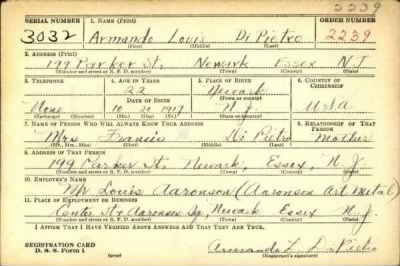 2239
SERIAL NUMBER 1. NAME (Print) ORDER NUMBER
3032 Armando Louis Di Pietro 2239
(First) (Middle) (Last)
2. ADDRESS (Print)
199 Parker St. Newark Essex N.J.
(Number and street or R. F. D. number) (Town) (County) (State)
3. TELEPHONE 4. AGE IN YEARS 5. PLACE OF BIRTH 6. COUNTRY OF CITIZENSHIP
22 Newark
DATE OF BIRTH (Town or county)
None 10 1917 N.J. USA
(Exchange) (Number) (Mo.) (Day) (Yr.) (State or country)
7. NAME OF PERSON WHO WILL ALWAYS KNOW YOUR ADDRESS 8. RELATIONSHIP OF THAT PERSON
Mrs Francis Di Pietro Mother
(Mr., Mrs., Miss) (First) (Middle) (Last)
9. ADDRESS OF THAT PERSON
199 Parker St. Newark, Essex, N. J.
(Number and street or R. F. D. number) (Town) (County) (State)
10. EMPLOYER'S NAME
Mr Louis Aaronson (Aaronson Art Metal)
11. PLACE OF EMPLOYMENT OR BUSINESS
Center St & Aaronson Newark Essex N. J.
(Number and street or R. F. D. number) (Town) (County) (State)
I AFFIRM THAT I HAVE VERIFIED ABOVE ANSWERS AND THAT THEY ARE TRUE.
REGISTRATION CARD
D. S. S. Form 1 (over) Armando L Di Pietro
(Registrant's signature)